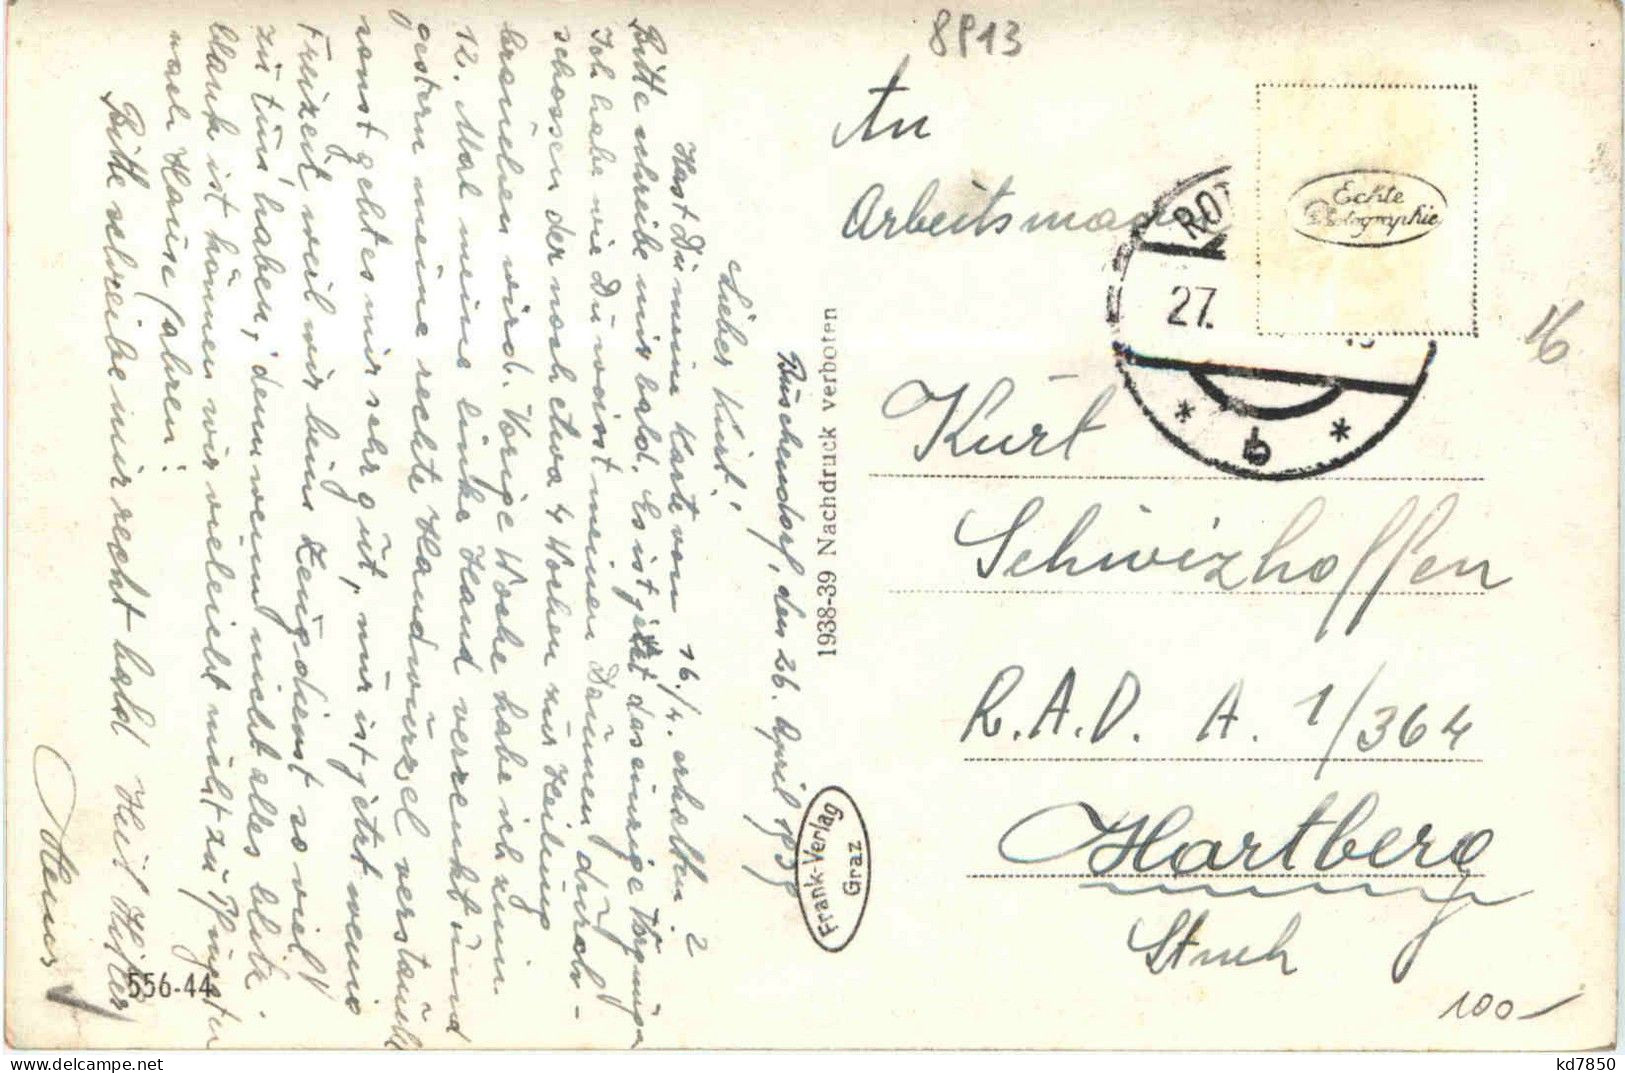 8P13
An
Arbeitsmann
ROT
27.
b
Echte
Photographie
16
Kurt
Schwizhoffen
R.A.D. A. 1/364
Hartberg
100-
1938-39 Nachdruck verboten
Frank-Verlag
Graz
556-44
Buschendorf, den 26. April 1939
Lieber Kurt!
Hast Du meine Karte vom 16./4. erhalten?
Bitte schreibe mir bald. Es ist jetzt das einzige Vergnügen
Ich habe wie Du weist meinen Daumen durch-
schossen der noch etwa 4 Wochen zur Heilung
brauchen wird. Vorige Woche habe ich zum
12. Mal meine linke Hand verrenkt und
gestern meine rechte Handwurzel verstaucht
sonst geht es mir sehr gut, nur ist jetzt wenig
Freizeit weil wir beim Zeugdienst so viel
zu tun haben, denn wenn nicht alles blitz
blank ist können wir vieleicht nicht zu Pfingsten
nach Hause fahren!
Bitte schreibe mir recht bald Heil Hitler
kd7850